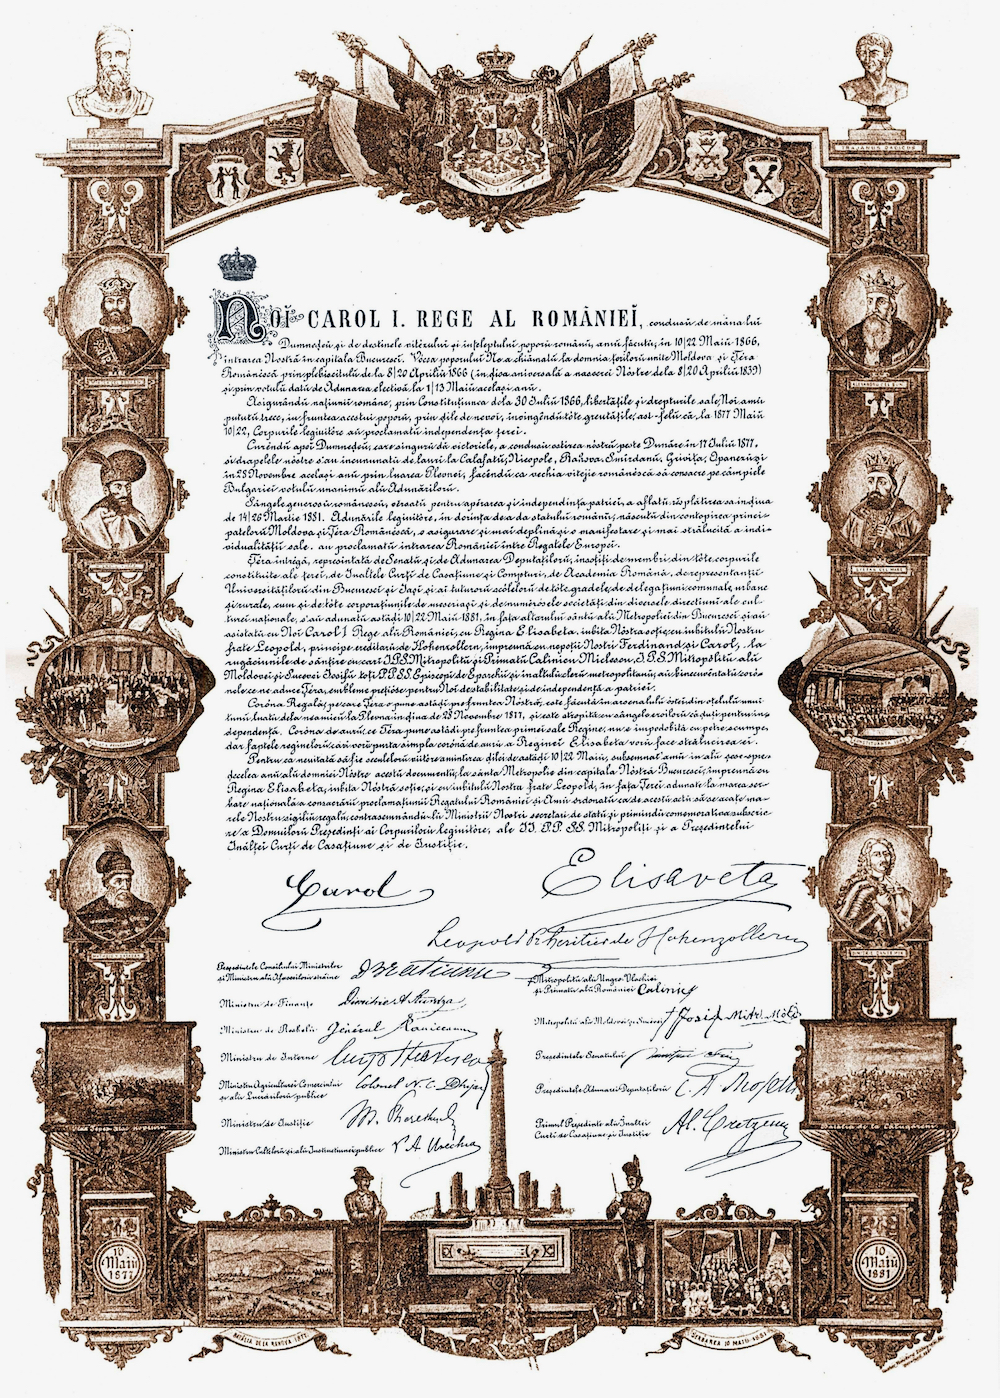 TRAJANUS DACICUS
NOĬ CAROL I. REGE AL ROMÂNIEĬ, condusŭ de mâna lui
Dumneḑeŭ și de destinele vitézului și înțeleptului poporŭ românŭ, amŭ făcutŭ, în 10/22 Maiŭ 1866,
intrarea Nóstră în capitala Bucurescĭ. Vocea poporului Ne a chiămatŭ la domnia țerilorŭ unite Moldova și Țéra
Românéscă prin plebiscitulŭ de la 8/20 Aprilie 1866 (în ḑioa aniversală a nascerei Nóstre de la 8/20 Aprilŭ 1839)
și prin votulŭ datŭ de Adunarea electivă, la 1/13 Maiŭ același anŭ.
Asigurândŭ națiunii române, prin Constituțiunea de la 30 Iuliŭ 1866, libertățile și drepturile sale, Noi amŭ
pututŭ trece, în fruntea acestui poporŭ, prin ḑile de nevoi, învingêndŭ tóte greutățile, ast-felŭ că, la 1877 Maiŭ
10/22, Corpurile legiuitóre aŭ proclamatŭ independența țerei.
Curêndŭ apoi Dumneḑeŭ, care singurŭ dă victoriele, a condusŭ óstirea nóstră peste Dunăre în 17 Iuliŭ 1877,
și drapelele nóstre s'aŭ incununatŭ de lauri la Calafatŭ, Nicopole, Rahova, Smirdanŭ, Grivița, Opanezŭ și
în 28 Novembre același anŭ prin luarea Plevnei, făcêndŭ ca vechia vitejie românéscă să consacre pe câmpiele
Bulgariei votulŭ unanimŭ alŭ Adunărilorŭ.
Sângele generosŭ românescŭ, vărsatŭ pentru apărarea și independința patriei, a aflatŭ résplătirea sa în ḑiua
de 14/26 Martie 1881. Adunările legiuitóre, în dorința de a da statului românŭ, născutŭ din contopirea princi-
patelorŭ Moldova și Țéra Românéscă, o asigurare și mai deplină și o manifestare și mai strălucită a indi-
vidualității sale, aŭ proclamatŭ intrarea României între Regatele Europei.
Țéra intrégă, represintată de Senatŭ și de Adunarea Deputațilorŭ, însoțiți de membrii din tóte corpurile
constituite ale țerei, de Inaltele Curți de Casațiune și Compturi, de Academia Română, de representanții
Universităților din Bucuresci și Iași și ai tuturor scólelorŭ de tóte gradele, de delegațiuni comunale, urbane
și rurale, cum și de tóte corporațiunile de meseriași și de numerósele societăți din diversele direcțiuni ale cul-
turei naționale, s'aŭ adunatŭ astăḑi 10/22 Maiŭ 1881, în fața altarului sântŭ alŭ Metropoliei din Bucuresci și aŭ
asistatŭ cu Noi Carol I Rege alŭ României, cu Regina Elisabeta, iubita Nóstra soție, cu iubitulŭ Nostru
frate Leopold, principe ereditarŭ de Hohenzollern, împreună cu nepoții Nostri Ferdinand și Carol, la
rugăciunile de sânțire cu cari I.P.S. Mitropolitŭ și Primatŭ Calinicŭ Miclescu, I.P.S. Mitropolitŭ alŭ
Moldovei și Sucevei Iosifŭ, toți P.P. S.S. Episcopi de Eparchii și inaltulŭ clerŭ metropolitanŭ, aŭ binecuvêntatŭ coró-
nele ce ne aduce Țéra, embleme prețióse pentru Noi de stabilitate și de independență a patriei.
Coróna Regală, pe care Țéra o pune astăḑi pe fruntea Nóstră, este făcută în arsenalulŭ óstirei din oțelulŭ unui
tunŭ, luatŭ de la neamicŭ la Plevna în ḑiua de 28 Novembre 1877, și este stropită cu sângele eroilorŭ căḑuți pentru in-
dependență. Coróna de aurŭ, ce Țéra pune astăḑi pe fruntea primei sale Regine, nu e împodobită cu petre scumpe,
dar faptele reginelorŭ, cari vorŭ purta simpla corónă de aurŭ a Reginei Elisabeta vorŭ face strălucirea ei.
Pentru ca neuitată să fie scenelorŭ viitóre amintirea ḑilei de astăḑi 10/22 Maiŭ, subsemnatŭ amŭ în alŭ șése-spre-
ḑecelea anŭ alŭ domniei Nóstre acestŭ documentŭ, la sânta Metropolie din capitala Nóstră Bucuresci, împreună cu
Regina Elisabeta, iubita Nóstră soție, și cu iubitulŭ Nostru frate Leopold, în fața Țerei adunate la marea ser-
bare națională a consacrării proclamațiunii Regatului României și Amŭ ordonatŭ ca de acestŭ actŭ să se acațe ma-
rele Nostru sigiliŭ regalŭ, contrasemnându-lŭ Miniștrii Nostri secretari de statŭ, și primindŭ comemorativa subscrie-
re a Domnilorŭ Președinți ai Corpurilorŭ legiuitóre, ale II. PP. SS. Mitropoliți și a Președintelui
Inaltei Curți de Casațiune și de Justiție.
Carol
Elisaveta
Leopold Pr. héritier de Hohenzollern
Președintele Consiliului Miniștrilor
și Ministru alŭ Afacerilorŭ străine
Brătianu
Mitropolitŭ alŭ Ungro-Vlachiei
și Primatŭ alŭ României Calinicŭ
Ministru de Finanțe
Dimitrie A. Sturdza
Mitropolitŭ alŭ Moldovei și Sucevei † Iosif Mitr. Mold.
Ministru de Resbelŭ General
Ministru de Interne
Președintele Senatului
Ministru Agriculturei Comerciului
și alŭ Lucrărilorŭ publice
Colonel N. C. Dabija
Președintele Adunărei Deputațilorŭ C. A. Rosetti
Ministru de Justiție M. Pherekyde
Primul Președinte alŭ Inaltei
Curți de Casațiune și Justiție
Al. Crețescu
Ministru Cultelorŭ și alŭ Instrucțiunei publice V. A. Urechia
10
Maiŭ
1877
10
Maiŭ
1881
BATALIA DE LA RAHOVA 1877
SERBAREA 10 MAIŬ 1881